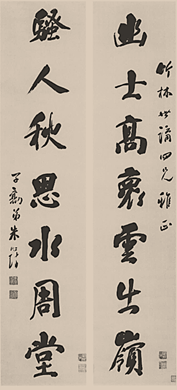 竹林世講四兄雅正
幽士高襟雲出嶺
騷人秋思水周堂
子勰弟朱